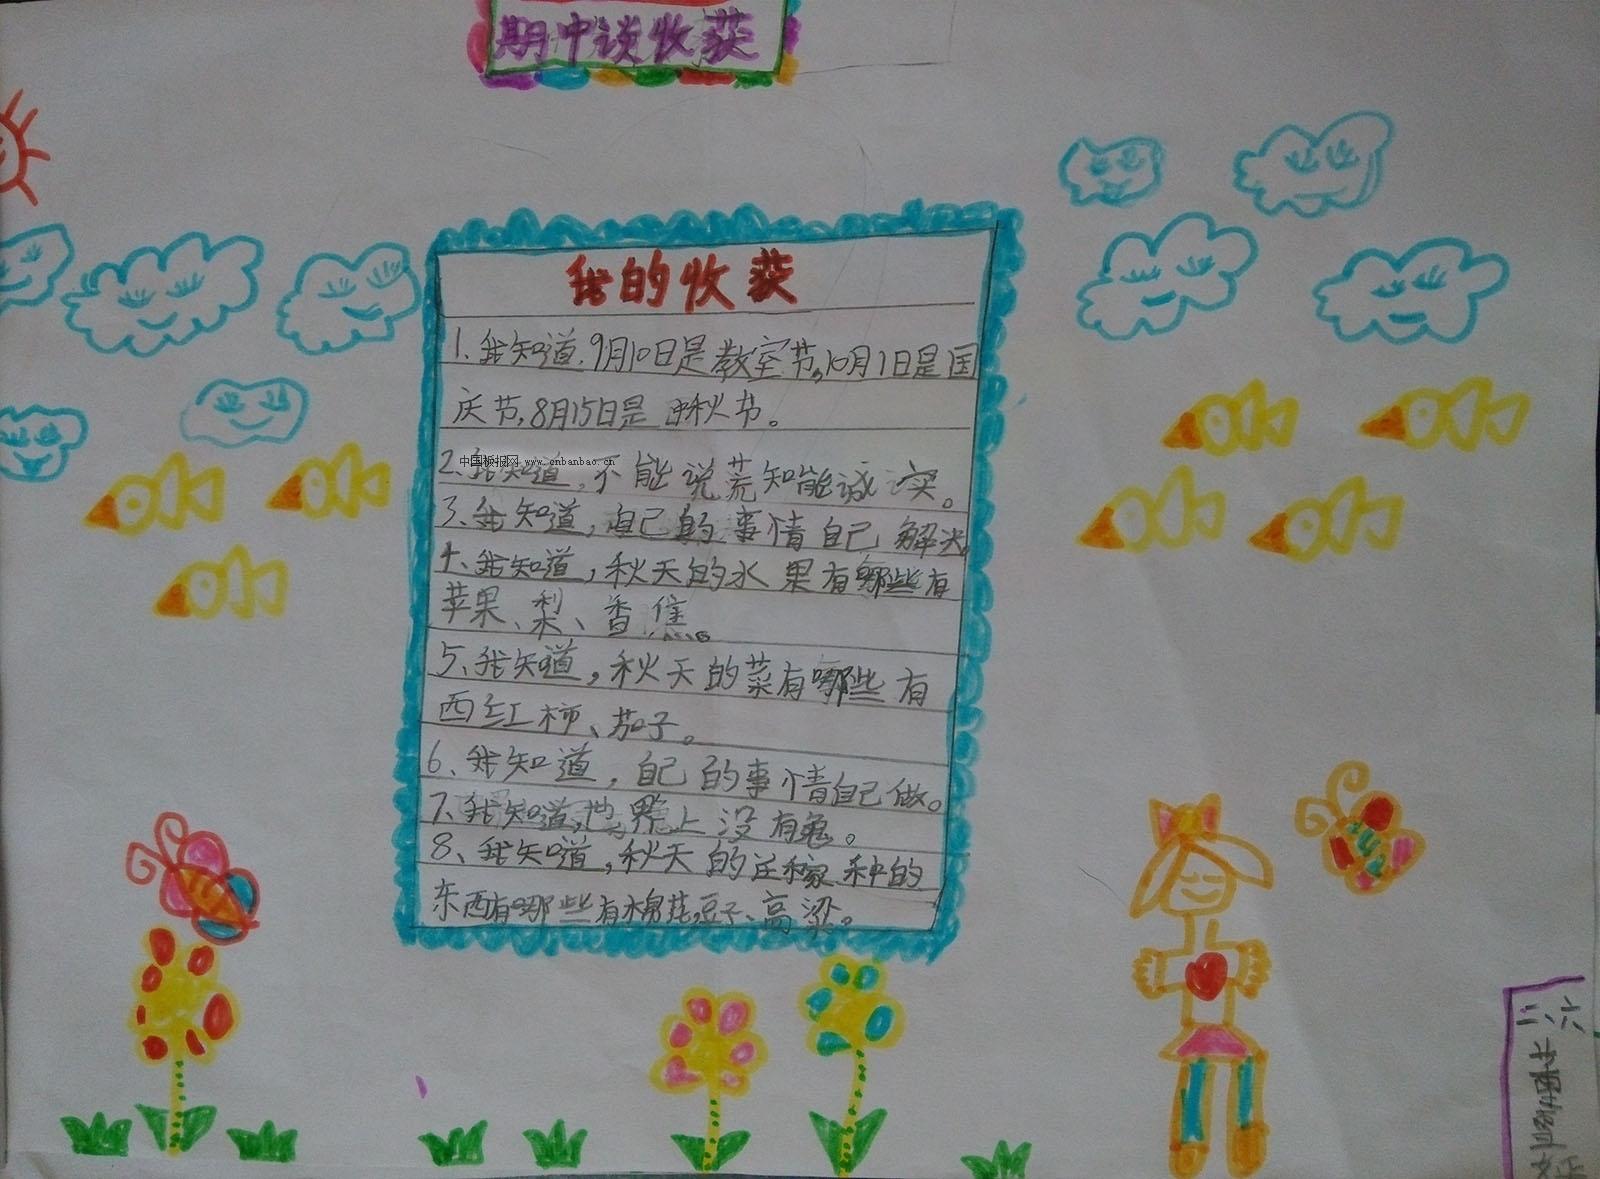 期中谈收获
我的收获
1、我知道.9月10日是教室节,10月1日是国
庆节,8月15日是中秋节。
2、我知道,不能说荒知能诚实。
中国板报网 www.cnbanbao.cn
3、我知道,自己的事情自己解决。
4、我知道,秋天的水果有哪些有
苹果、梨、香焦。
5、我知道,秋天的菜有哪些有
西红柿、茄子。
6、我知道,自己的事情自己做。
7、我知道,世界上没有鬼。
8、我知道,秋天的庄稼种的
东西有哪些有棉花,豆子、高梁。
二、六